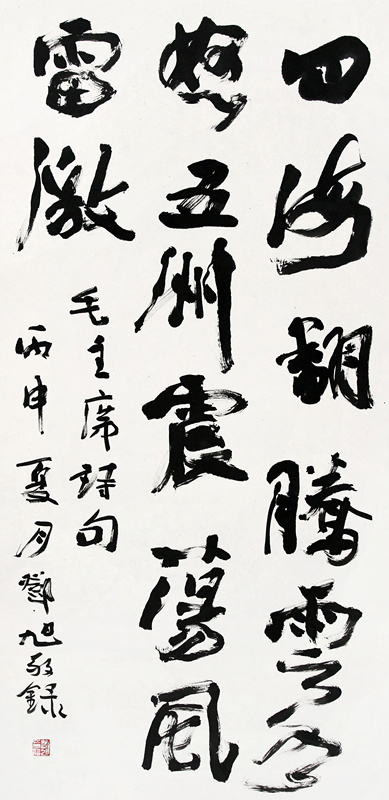 四海翻騰雲水
怒五州震蕩風
雷激
毛主席詩句
丙申夏月鄧旭敬錄